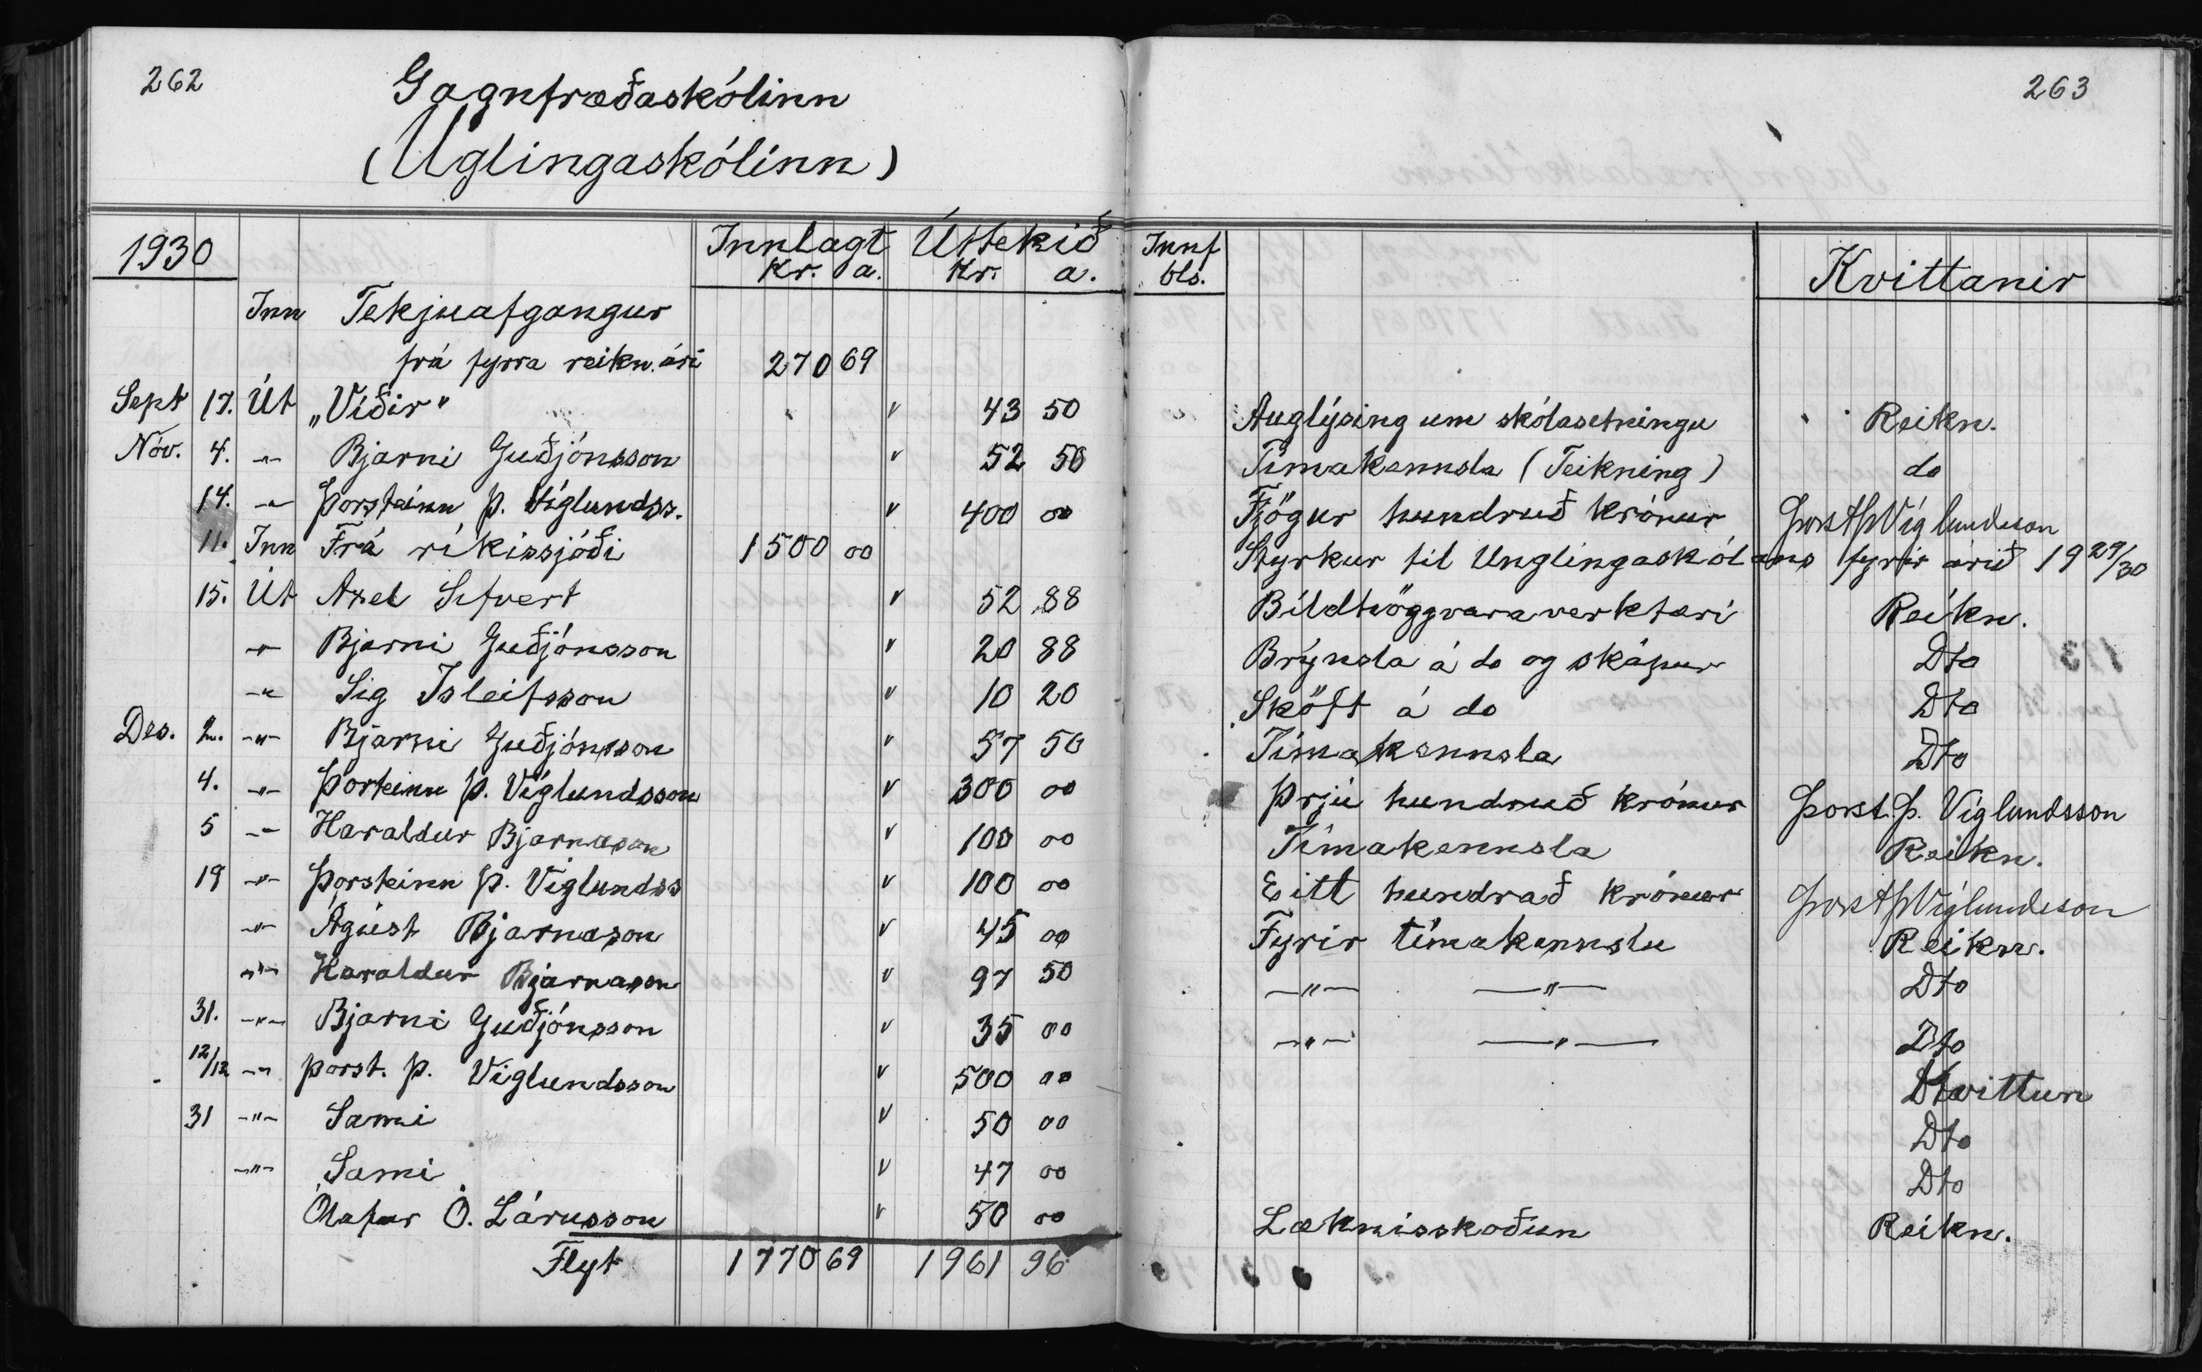 262
Gagnfræðaskólinn
(Uglingaskólinn)
1930 Innlagt Úttekið
Kr. a. Kr. a.
Inn Tekjuafgangur
frá fyrra reikn. ári 270 69
Sept 17. Út „Víðir“ " 43 50
Nóv. 4. -"- Bjarni Guðjónsson " 52 50
14. -"- Þorsteinn Þ. Víglundss. " 400 00
11. Inn Frá ríkissjóði 1500 00
15. Út Axel " 52 88
-"- Bjarni Guðjónsson " 20 88
-"- Sig Ísleifsson " 10 20
Des. 2. -"- Bjarni Guðjónsson " 57 50
4. -"- Þorteinn Þ. Víglundsson " 300 00
5 -"- Haraldur Bjarnason " 100 00
19 -"- Þorsteinn Þ. Víglundss " 100 00
-"- Ágúst Bjarnason " 45 00
-"- Haraldur Bjarnason " 97 50
31. -"- Bjarni Guðjónsson " 35 00
12/12 -"- Þorst. Þ. Víglundsson " 500 00
31 -"- Sami " 50 00
-"- Sami " 47 00
Ólafur Ó. Lárusson " 50 00
Flyt 1770 69 1961 96
263
Innf bls. Kvittanir
Auglýsing um skólasetningu Reikn.
Tímakennsla (Teikning) do
Fjögur hundruð krónur Þorst Þ Víglundsson
Styrkur til Unglingaskólans fyrir árið 19 29/30
Bíldhöggvaraverkfæri Reikn.
Brýnsla á do og skápur Dto
Sköft á do Dto
Tímakennsla Dto
Þrjú hundruð krónur Þorst. Þ. Víglundsson
Tímakennsla Reikn.
Eitt hundrað krónur Þorst Þ Víglundsson
Fyrir tímakennslu Reikn.
-"- -"- Dto
-"- -"- Dto
Kvittun
Dto
Dto
Læknisskoðun Reikn.